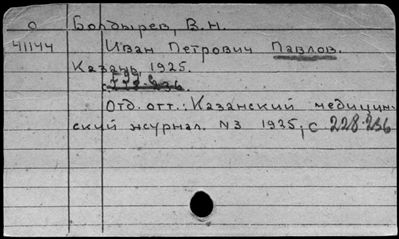 О Болдырев, В.Н.
41144 Иван Петрович Павлов.
Казань, 1925.
Отд. отт.: Казанский медицин-
ский журнал. N3 1925, с 228-236